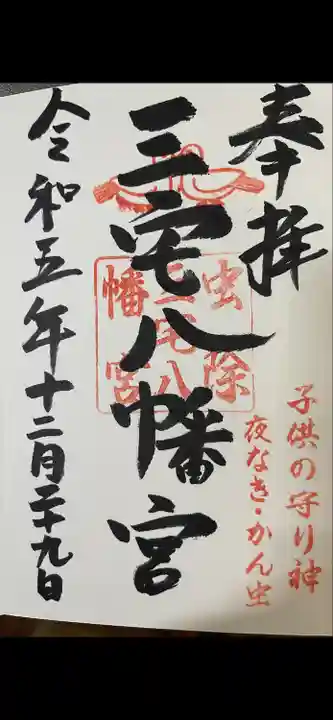 奉拝
三宅八幡宮
虫除
三宅八
幡宮
子供の守り神
夜なき・かん虫
令和五年十二月二十九日